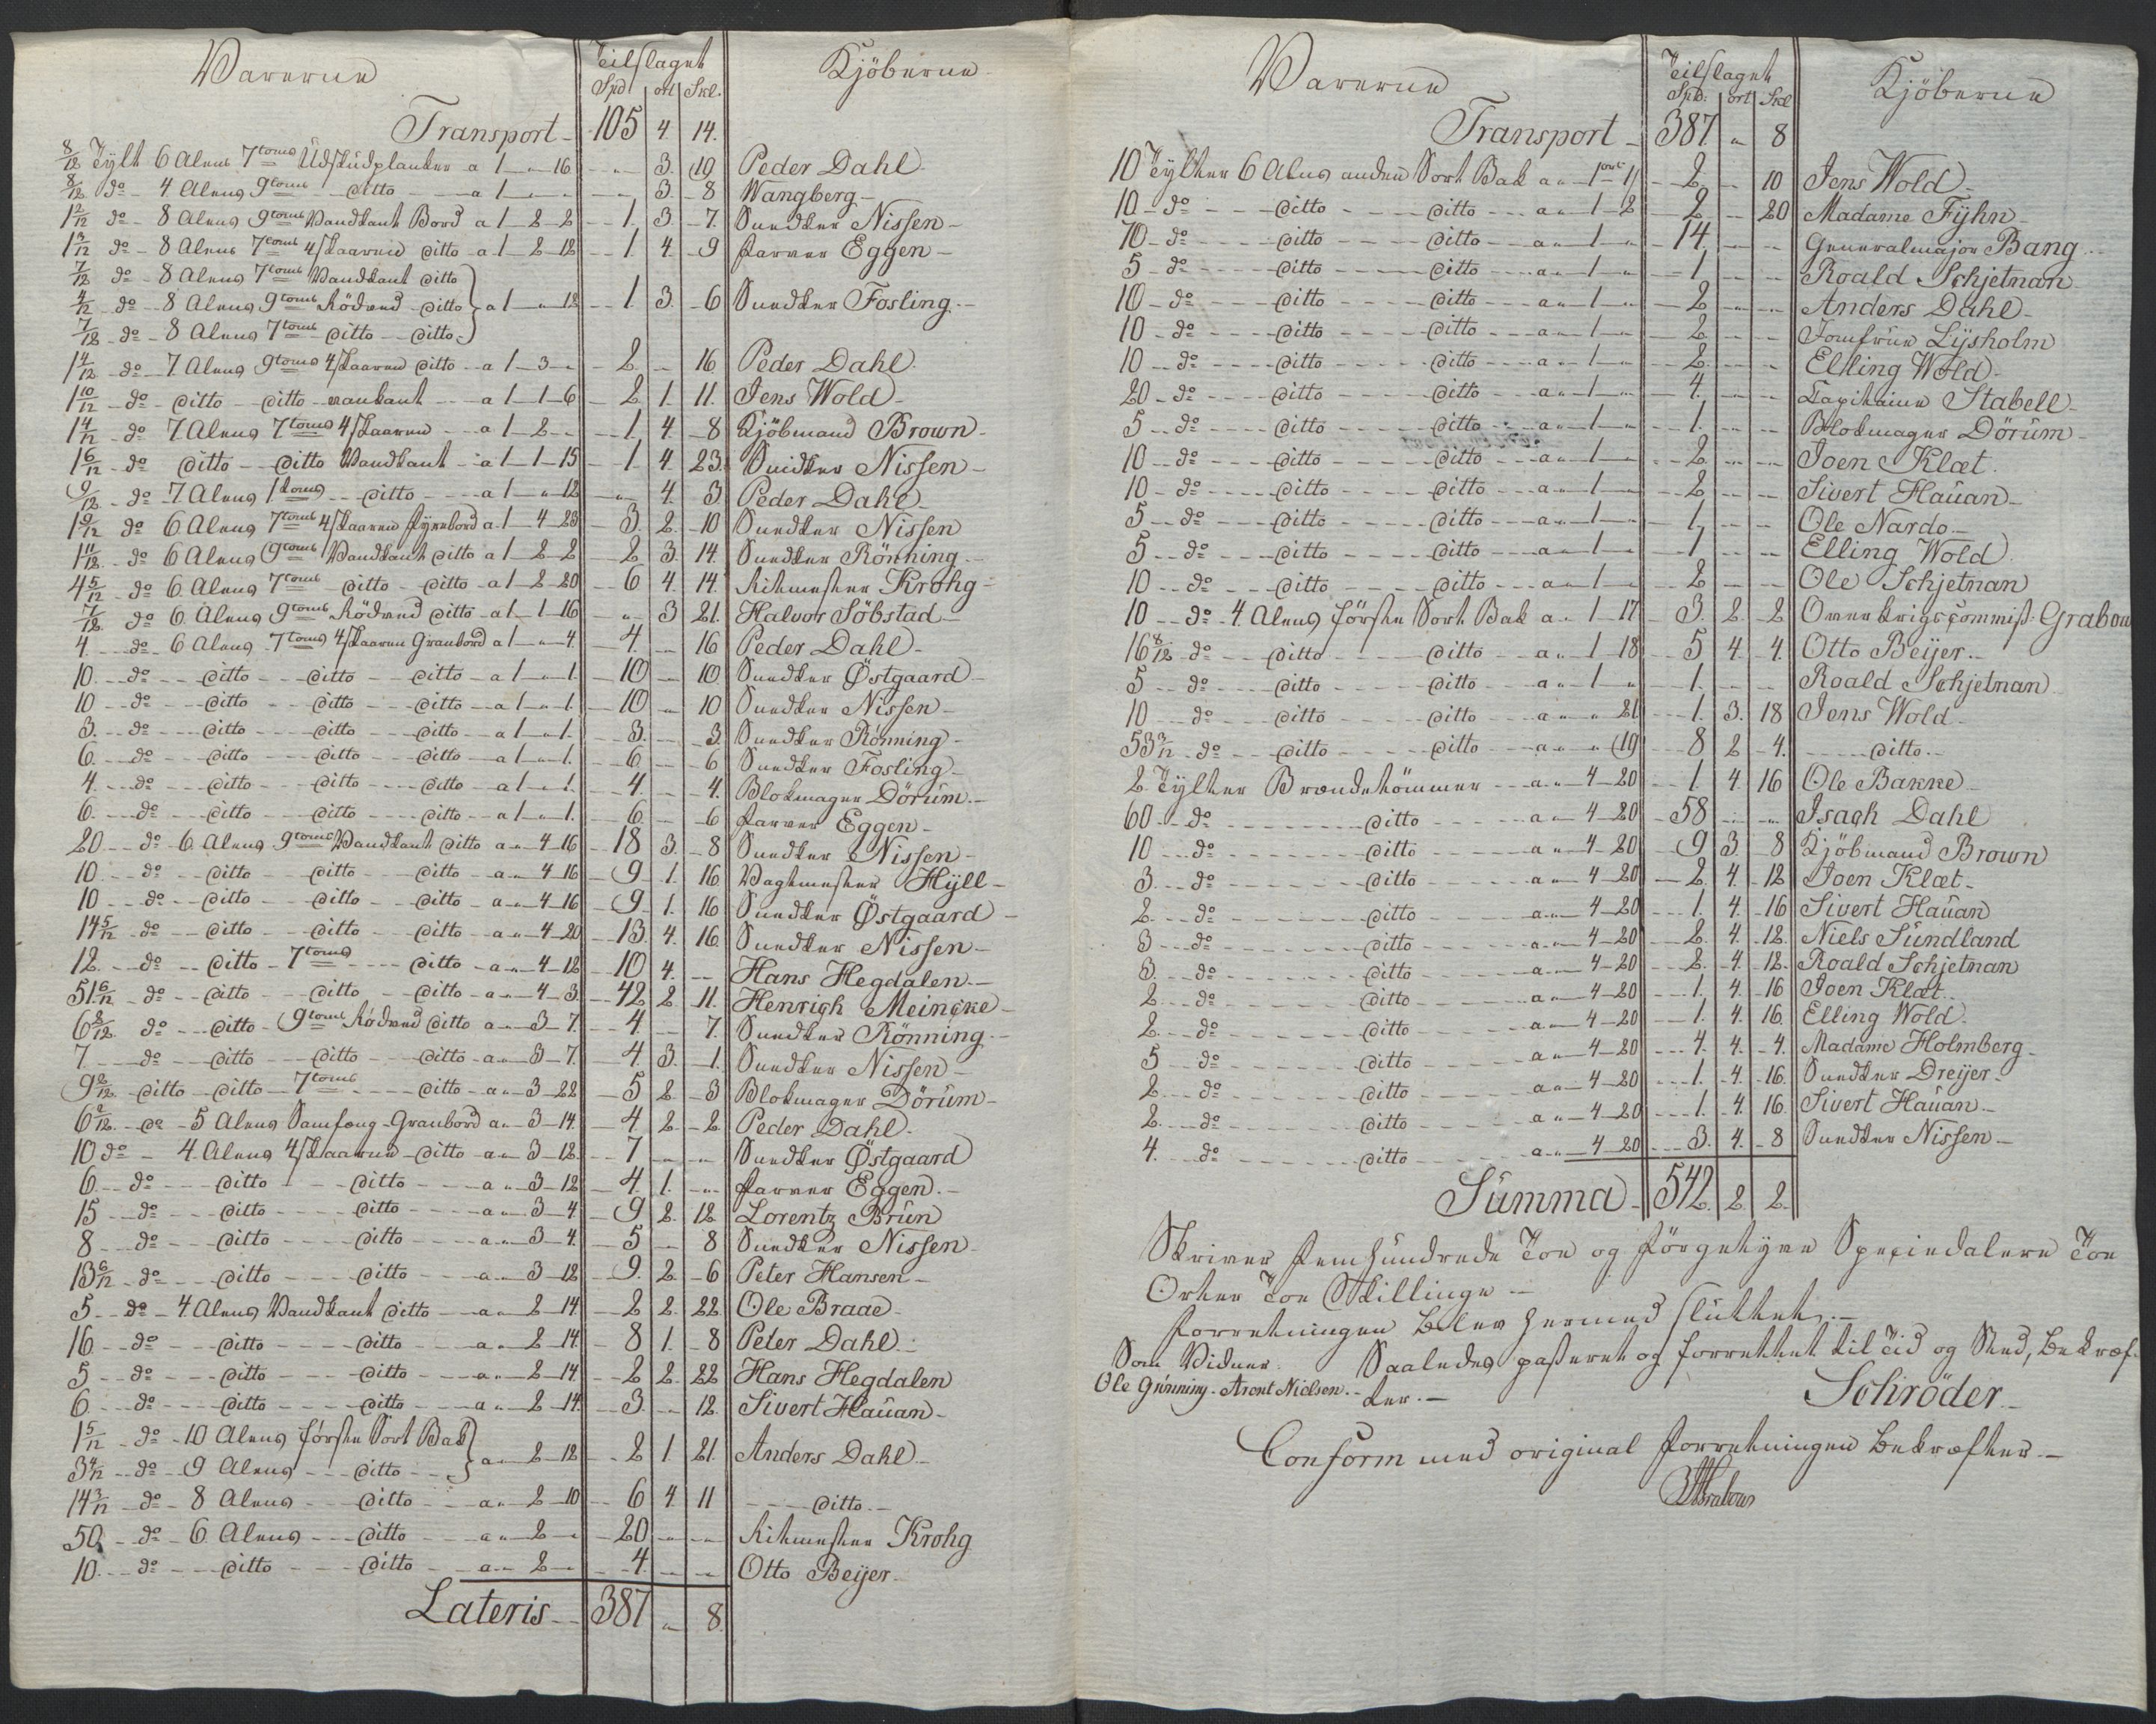 Varerne Tilslaget Kjöberne
Spd ort Skl.
Transport 105 4. 14.
8/12 Tylt 6 Alens 7 toms Udskudplanker a 1 " 16 " 3. 19 Peder Dahl
8/12 do 4 Alens 9 toms ditto a 1 " " " 3. 8 Wangberg
1 2/12 do 8 Alens 9 toms Vandkant Bord a 1 2 2 1. 3. 7. Snedker Nissen
1 3/12 do 8 Alens 7 toms 4skaaren ditto a 1 2 12 1. 4. 9 Farver Eggen
7/12 do 8 Alens 7 toms Vandkant ditto
4/12 do 8 Alens 9 toms Rödved ditto a 1 " 12 1. 3. 6 Snedker Fosling
7/12 do 8 Alens 7 toms ditto ditto
1 4/12 do 7 Alens 9 toms 4skaaren ditto a 1 3 " 2. " 16 Peder Dahl
1 10/12 do ditto ditto vankant a 1 1 6 2 1. 11. Jens Wold
1 4/12 do 7 Alens 7 toms 4skaaren a 1 2 " 1. 4. 8 Kjöbmand Brown
1 6/12 do ditto ditto Vandkant a 1 1 15 1. 4. 23. Snidker Nissen
9/12 do 7 Alens 1 toms ditto a 1 " 12 " 4. 3 Peder Dahl
1 9/12 do 6 Alens 7 toms 4skaaren Fyrrebord a 1 4 23 3. 2. 10 Snedker Nissen
1 11/12 do 6 Alens 9 toms Vandkant ditto a 1 2 2 2 3. 14. Snedker Rönning
4 5/12 do 6 Alens 7 toms ditto ditto a 1 2 20 6 4. 14. Ritmester Krohg
7/12 do 6 Alens 9 toms Rödved ditto a 1 1 16 " 3 21. Halvor Söbstad
4 do 6 Alens 7 toms 4skaaren Granbord a 1 " 4. 4. " 16 Peder Dahl
10. do ditto ditto ditto a 1 " 1. 10 " 10. Snedker Østgaard
10 do ditto ditto ditto a 1 " 1. 10 " 10 Snedker Nissen
3. do ditto ditto ditto a 1 " 1. 3. " 3. Snedker Rönning
6. do ditto ditto ditto a 1 " 1. 6. " 6 Snedker Fosling
4. do ditto ditto ditto a 1 " 1. 4. " 4. Blokmager Dörum
6. do ditto ditto ditto a 1 " 1. 6. " 6 Farver Eggen
20. do 6 Alens 9 toms Vandkant ditto a " 4 16 18 3. 8 Snedker Nissen
10. do ditto ditto ditto a " 4 16 9 1. 16 Vagtmester Hyll
10 do ditto ditto ditto a " 4 16 9 1. 16 Snedker Östgaard
14 5/12 do ditto ditto ditto a " 4 20 13. 4. 16. Snedker Nissen
12. do ditto 7 toms ditto a " 4 12 10 4. " Hans Hegdalen
51 6/12 do ditto ditto ditto a " 4 3. 42 2 11. Henrich Meincke
6 8/12 do ditto 9 toms Rödved ditto a " 3 7. 4. " 7. Snedker Rönning
7 do ditto ditto ditto a " 3 7. 4. 3. 1. Snedker Nissen
9 2/12 ditto ditto 7 toms ditto a " 3 22 5 2. 3 Blokmager Dörum
6 2/12 do 5 Alens Samfæng Granbord a " 3 14. 4 2 2. Peder Dahl
10 do 4. Alens 4skaaren ditto a " 3 12. 7 " " Snedker Østgaard
6. do ditto ditto a " 3 12 4. 1. " Farver Eggen
15 do ditto ditto a " 3 4 9 2. 12 Lorentz Brün
8 do ditto ditto a " 3 4. 5 " 8 Snedker Nissen
13 6/12 do ditto ditto a " 3 12 9. 2. 6 Peter Hansen
5 do 4. Alens Vandkant ditto a " 2 14 2 2. 22 Ole Braae
16. do ditto ditto a " 2 14. 8 1. 8 Peter Dahl
5 do ditto ditto a " 2 14 2 2. 22 Hans Hegdalen
6. do ditto ditto a " 2 14. 3. " 12. Sivert Hauan
1 5/12 do 10 Alens første Sort Bak
3 4/12 do 9 Alens ditto a " 2 12 2 1 21. Anders Dahl
14 3/12 do 8 Alens ditto a " 2 10 6 4. 11 ditto
50 do 6 Alens ditto a " 2 " 20 " " Ritmester Krohg
10. do ditto ditto a " 2 " 4. " " Otto Beijer
Lateris 387 " 8.
Varerne Tilslaget Kjöberne
Spd. ort Skl
Transport 387 " 8
10 Tylter 6 Alens anden Sort Bak a " 1 ort 1 2. " 10 Jens Wold
10 do ditto ditto a " 1 2 2 " 20 Madame Fyhn
70 do ditto ditto a " 1 " 14. " " Generalmajor Bang
5 do ditto ditto a " 1 " 1 " " Roald Schjetnan
10 do ditto ditto a " 1 " 2 " " Anders Dahl
10 do ditto ditto a " 1 " 2. " " Jomfrue Lysholm
10 do ditto ditto a " 1 " 2. " " Elling Wold
20 do ditto ditto a " 1 " 4. " " Capitaine Stabell
5 do ditto ditto a " 1 " 1. " " Blokmager Dörum
10 do ditto ditto a " 1 " 2. " " Joen Klæt
10 do ditto ditto a " 1 " 2 " " Sivert Hauan
5 do ditto ditto a " 1 " 1. " " Ole Nardo
5 do ditto ditto a " 1 " 1 " " Elling Wold
10 do ditto ditto a " 1 " 2 " " Ole Schjetnan
10 do 4 Alens første Sort Bak a " 1 17 3. 2. 2 Overkrigscommiss. Grabow
16 8/12 do ditto ditto a " 1 18 5 4. 4. Otto Beijer
5 do ditto ditto a " 1 " 1. " " Roald Schjetnan
10 do ditto ditto a " " 21 1. 3. 18 Jens Wold
53 3/12 do ditto ditto a " " 19 8 2 4. ditto
2 Tylter Brændetömmer a " 4 20 1. 4. 16 Ole Bakke
60 do ditto a " 4 20 58 " " Isach Dahl
10 do ditto a " 4 20 9 3. 8 Kjöbmand Brown
3. do ditto a " 4 20 2. 4. 12 Joen Klæt
2. do ditto a " 4 20 1. 4. 16 Sivert Hauan
3 do ditto a " 4 20 2. 4. 12. Niels Sundland
3. do ditto a " 4 20 2. 4. 12. Roald Schjetnan
2. do ditto a " 4 20 1. 4. 16 Joen Klæt
2. do ditto a " 4 20 1. 4. 16. Elling Wold
5 do ditto a " 4 20 4. 4. 4. Madame Holmberg
2. do ditto a " 4 20 1. 4. 16. Snedker Dreijer
2. do ditto a " 4 20 1. 4. 16. Sivert Hauan
4. do ditto a " 4 20 3. 4. 8 Snedker Nissen
Summa 542. 2. 2.
Skriver femhundrede Toe og förgetyve Speciedalere Toe
Orter Toe Skillinge
Forretningen blev hermed sluttet.
Som Vidner. Saaledes passeret og forrettet til Tid og Sted, bekræf-
Ole Grönning. Arent Nielsen. ter. Schröder
Conform med original Forretningen bekræfter
Grabow